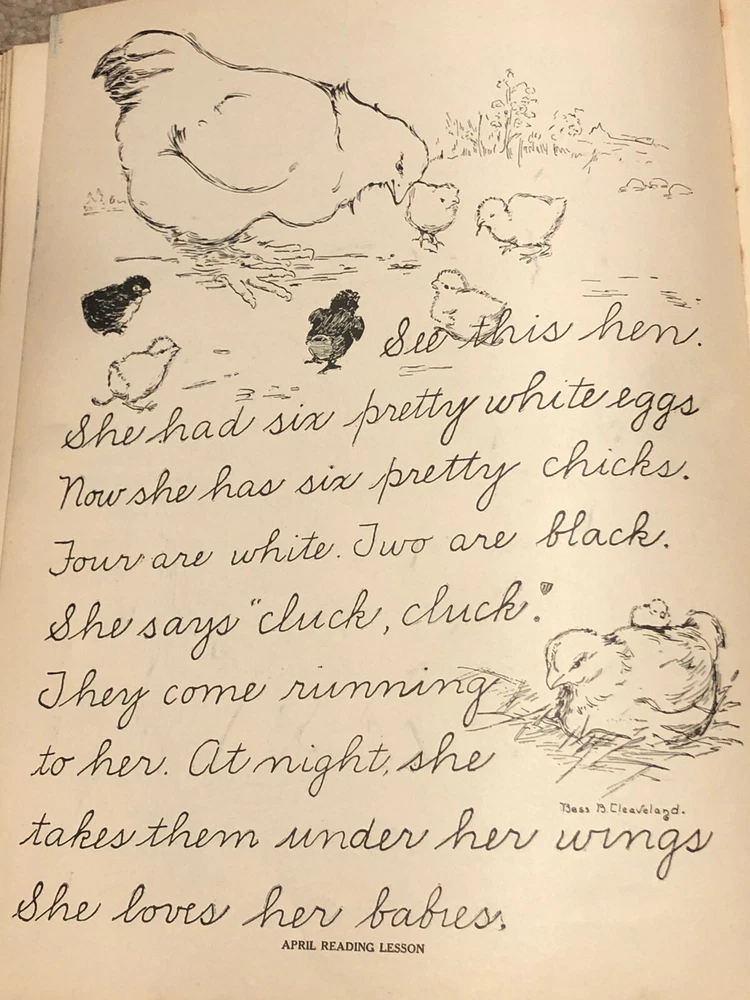 See this hen.
She had six pretty white eggs
Now she has six pretty chicks.
Four are white. Two are black.
She says "cluck, cluck."
They come running
to her. At night, she
Bess B. Cleaveland.
takes them under her wings
She loves her babies.
APRIL READING LESSON